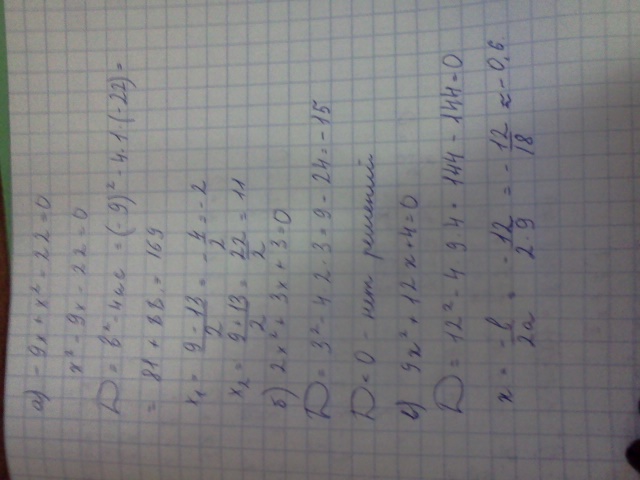 а) -9x + x² - 22 = 0
x² - 9x - 22 = 0
D = b² - 4ac = (-9)² - 4·1·(-22) =
= 81 + 88 = 169
x₁ = (9 - 13)/2 = -4/2 = -2
x₂ = (9 + 13)/2 = 22/2 = 11
б) 2x² + 3x + 3 = 0
D = 3² - 4·2·3 = 9 - 24 = -15
D < 0 - нет решений
в) 9x² + 12x + 4 = 0
D = 12² - 4·9·4 = 144 - 144 = 0
x = -b/2a = -12/2·9 = -12/18 ≈ -0,6